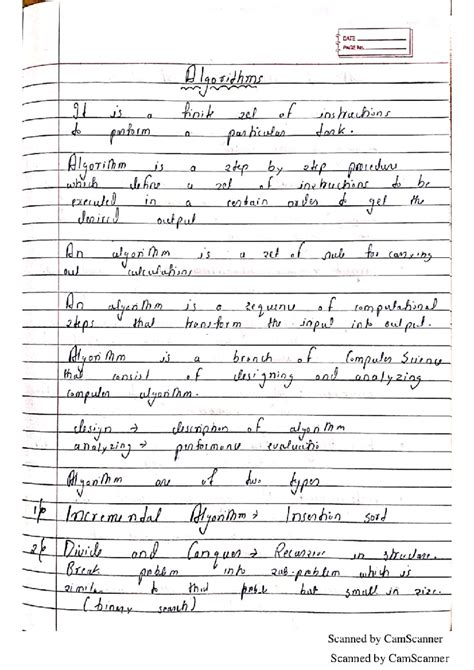 DATE
PAGE No.
Algorithms
It is a finite set of instructions
to perform a particular task.
Algorithm is a step by step procedure
which define a set of instructions to be
executed in a certain order to get the
desired output
An algorithm is a set of rule for carrying
out calculations
An algorithm is a sequence of computational
steps that transform the input into output.
Algorithm is a branch of Computer Science
that consist of designing and analyzing
computer algorithm.
design → description of algorithm
analyzing → performance evaluation
Algorithm are of two types
Incremental Algorithm → Insertion sort
Divide and Conquer → Recursive in structure.
Break problem into sub-problem which is
similar to that but small in size.
(binary search)
Scanned by CamScanner
Scanned by CamScanner